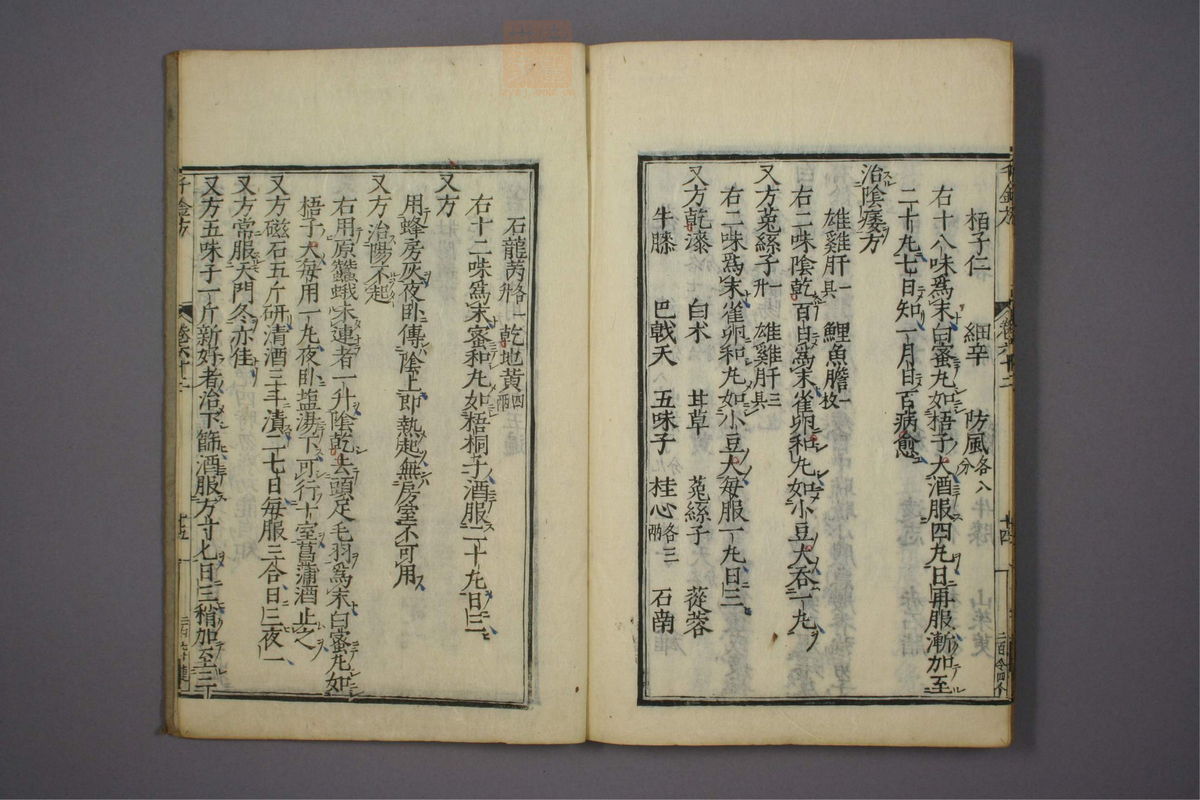 栢子仁 細辛 防風各八分
右十八味爲末白蜜丸如梧子大酒服四丸日再服漸加至
二十丸七日知一月日百病愈
治陰痿方
雄雞肝一具 鯉魚膽一枚
右二味陰乾百日爲末雀卵和丸如小豆大吞一丸
又方菟絲子一升 雄雞肝三具
右二味爲末雀卵和丸如小豆大每服一丸日三
又方乾漆 白朮 甘草 菟絲子 蓯蓉
牛膝 巴戟天 五味子 桂心各三兩 石南
石龍芮各一升 乾地黃四兩
右十二味爲末蜜和丸如梧桐子酒服二十丸日三
又方
用蜂房灰夜卧傅陰上即熱起無房室不可用
又方治陽不起
右用原蠶蛾未連者一升陰乾去頭足毛羽爲末白蜜丸如
梧子大每用一丸夜卧塩湯下可行十室菖蒲酒止之
又方磁石五斤研清酒三斗漬二七日每服三合日三夜一
又方常服天門冬亦佳
又方五味子一斤新好者治下篩酒服方寸匕日三稍加至三
千金方
卷六十二
十四
千金方
卷六十二
十五